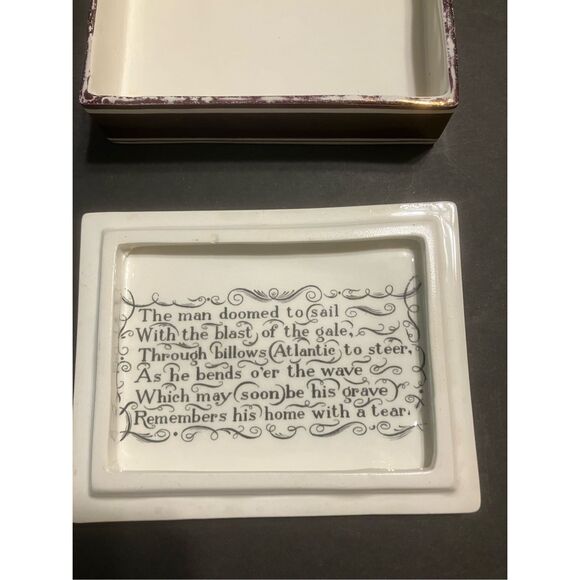 The man doomed to sail
With the blast of the gale,
Through billows Atlantic to steer,
As he bends o'er the wave
Which may soon be his grave
Remembers his home with a tear.